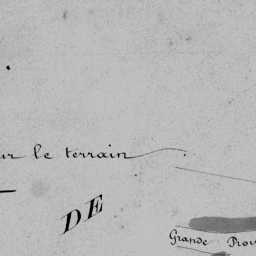 ur le terrain
DE
Grande Prov